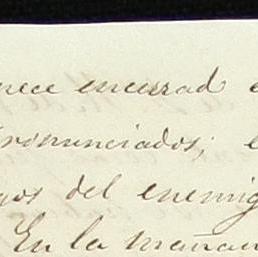 nece encerrad e
Pronunciados; e
gos del enemig
En la mañan